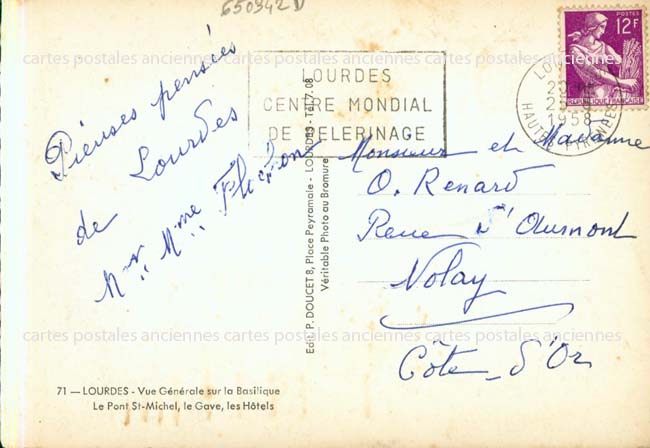 650942
cartes postales anciennes cartes postales anciennes cartes postales anciennes
POSTES
12F
REPUBLIQUE FRANÇAISE
LOURDES
CENTRE MONDIAL
DE PELERINAGE
1958
HAUTES PYRENEES
Pieuses pensées
de Lourdes
Mr. Mme
Monsieur et Madame
O. Renard
Rue d'Aumont
Nolay
Côte-d'Or
Edit. P. DOUCET 8, Place Peyramale - LOURDES - Tél. 7.08
Véritable Photo au Bromure
cartes postales anciennes cartes postales anciennes cartes postales anciennes
71 — LOURDES - Vue Générale sur la Basilique
Le Pont St-Michel, le Gave, les Hôtels